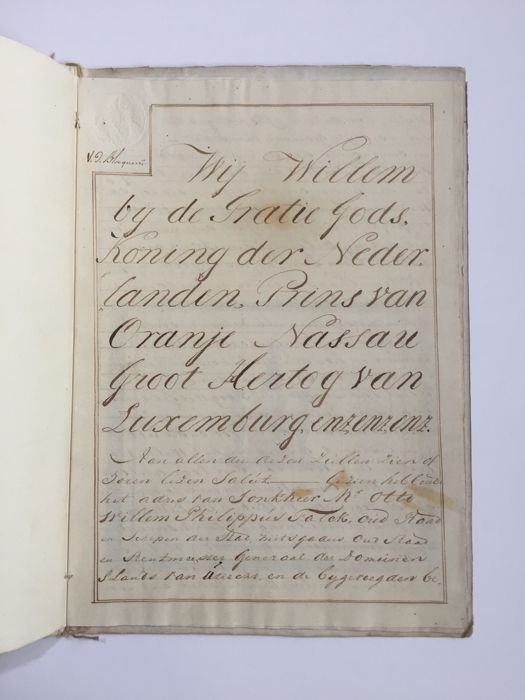 Wij Willem
by de Gratie Gods,
Koning der Neder
landen, Prins van
Oranje Nassau
Groot Hertog van
Luxemburg, enz, enz, enz.
Aan allen die dezen zullen zien of
hooren lezen Salut Gezien hebbende
het adres van Jonkheer Mr Otto
Willem Philippus Oud Raad
en Schepen der Stad, mitsgaders Oud Raad
en Rentmeester Generaal der Domeinen
S Lands van en de bygevoegden be,